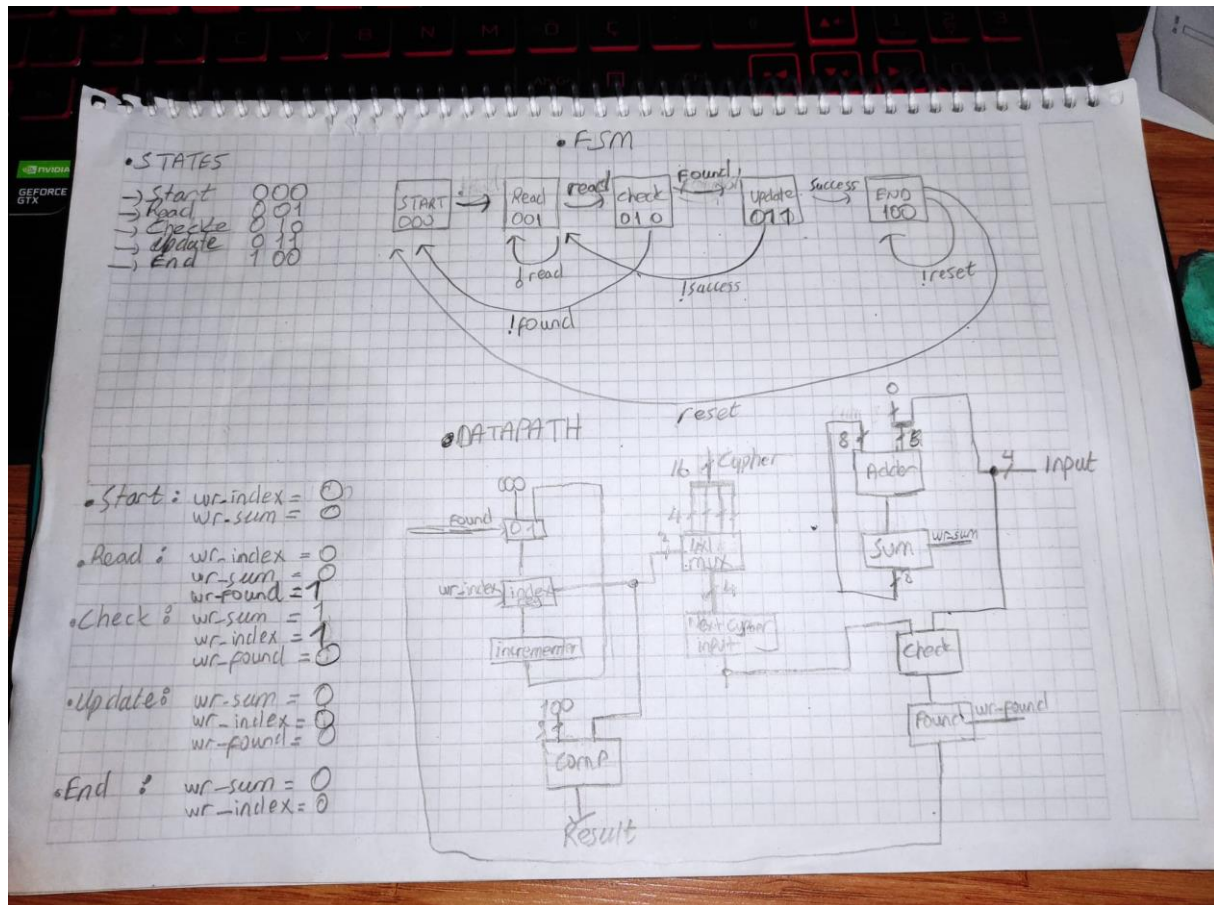 NVIDIA
GEFORCE
GTX
• FSM
• STATES
→ Start 000
→ Read 001
→ Checke 010
→ update 011
→ End 100
START
000
Read
001
read
check
010
Found
update
011
success
END
100
!read
!success
!reset
!found
reset
• DATAPATH
• Start: wr_index = 0
wr_sum = 0
• Read: wr_index = 0
wr_sum = 0
wr_found = 1
• Check: wr_sum = 1
wr_index = 1
wr_found = 0
• Update: wr_sum = 0
wr_index = 0
wr_found = 0
• End: wr_sum = 0
wr_index = 0
000
Found
0 1
wr_index
index
reg
incrementer
100
3
comp
Result
16 Cypher
4
3
mux
4
Next Cypher
input
0
8
Adder
4 Input
Sum
wr_sum
8
Check
Found
wr_found